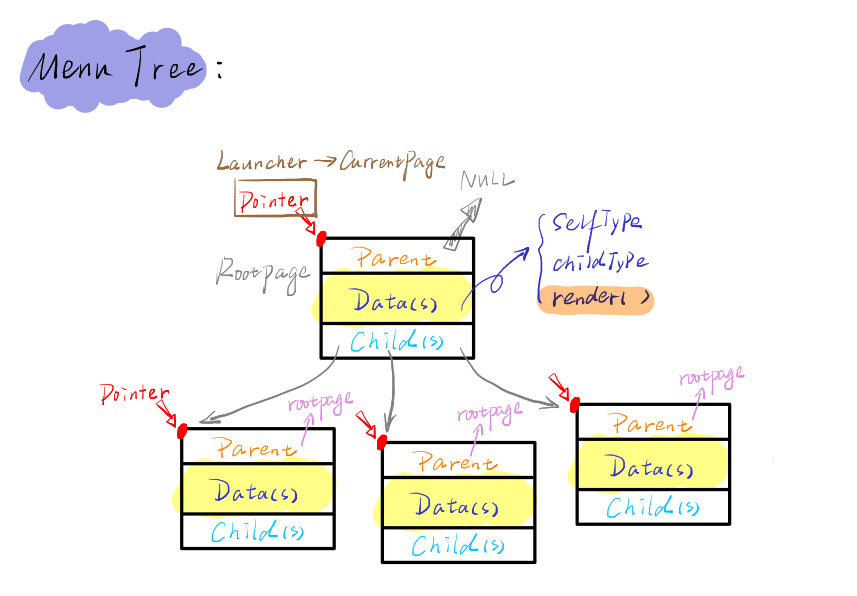 Menu Tree:
Launcher → CurrentPage
Pointer
NULL
Rootpage
Parent
Data(s)
Child(s)
selfType
childType
render()
Pointer
rootpage
Parent
Data(s)
Child(s)
rootpage
Parent
Data(s)
Child(s)
rootpage
Parent
Data(s)
Child(s)